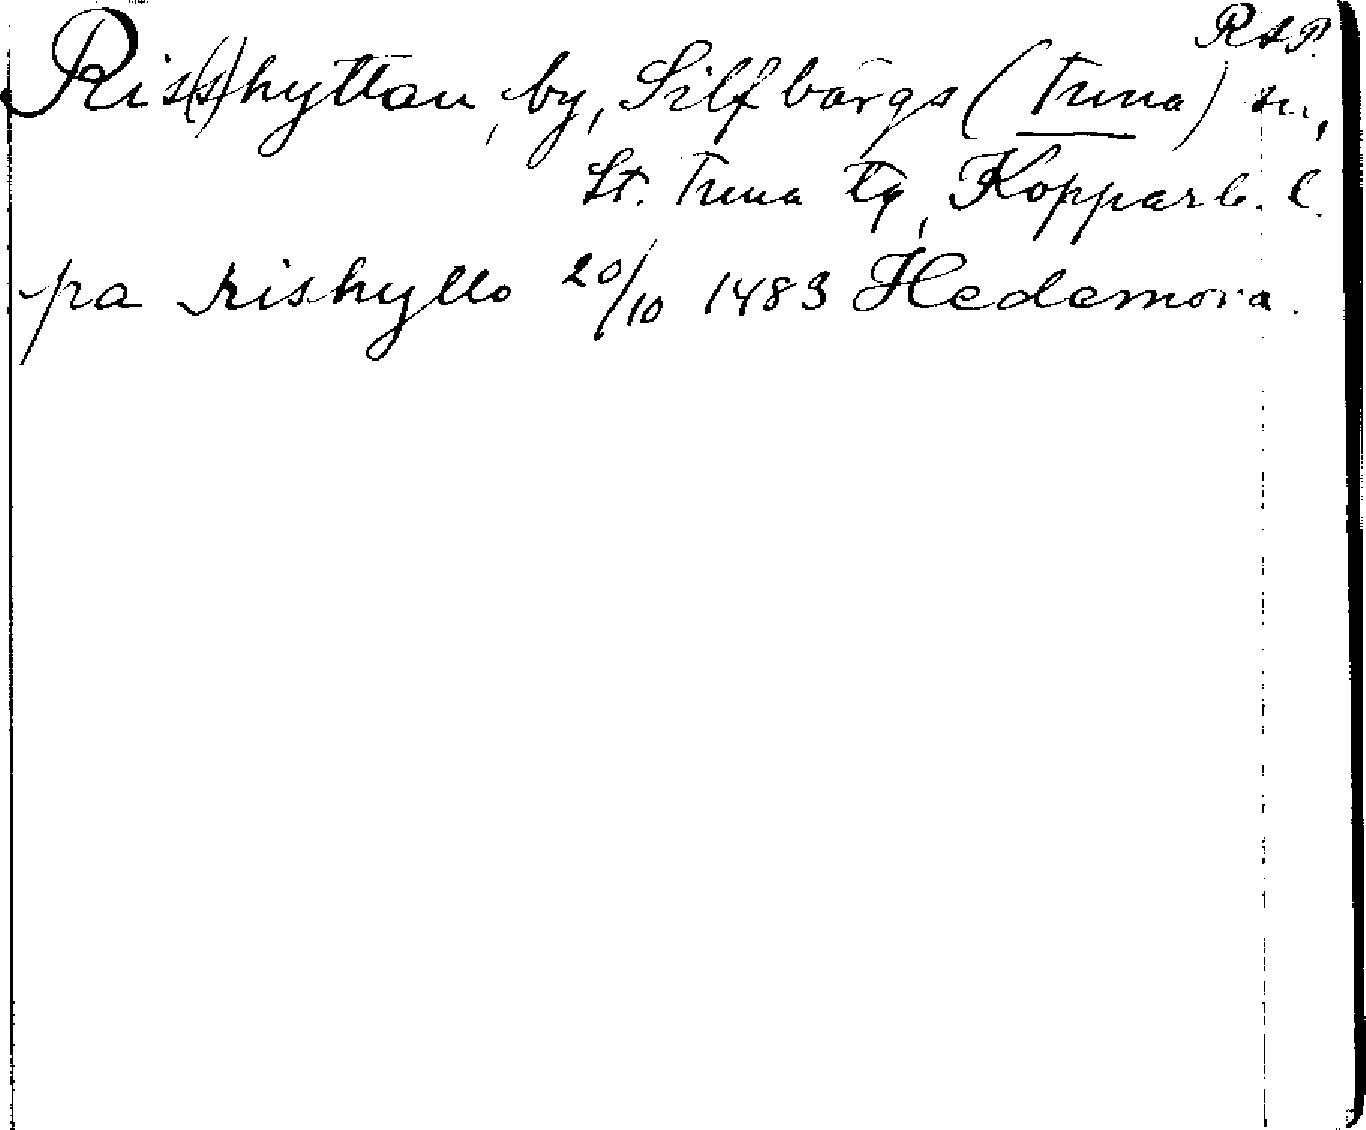 RAP.
Ris(s)hyttan, by, Silfbärgs (Tuna) sn,
St. Tuna tg, Kopparb. l.
pa rishytto 20/10 1483 Hedemora.